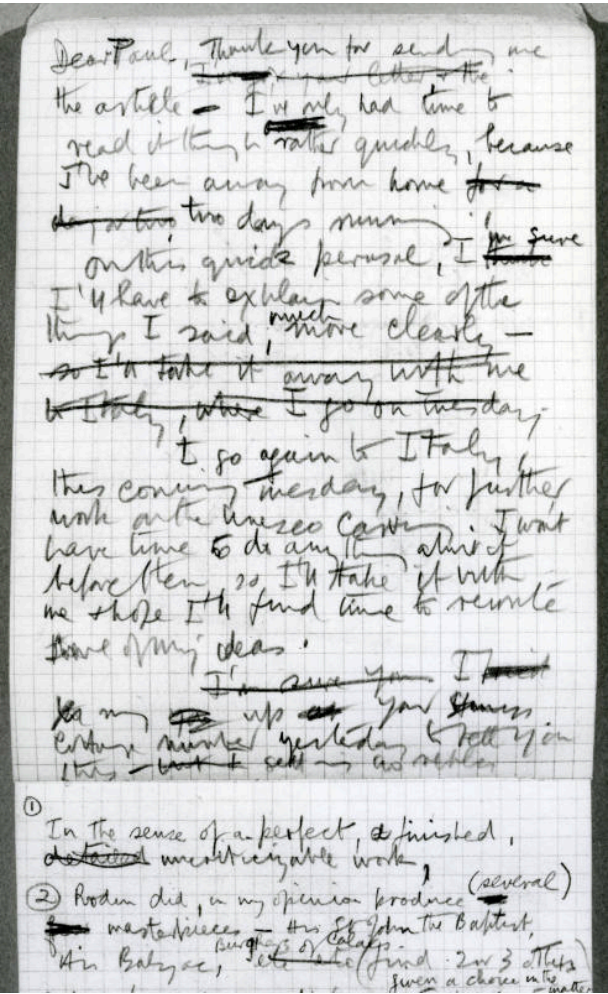 Dear Paul, Thank you for sending me
your letter & the
the article – I've only had time to
read it through rather quickly, because
I've been away from home for a
day or two two days running.
on this quick perusal, I'm sure
I'll have to explain some of the
things I said, much more clearly –
so I'll take it away with me
to Italy, where I go on tuesday.
I go again to Italy,
this coming tuesday, for further
work on the Unesco Carving. I wont
have time to do anything about it
before then, so I'll take it with
me & hope I'll find time to rewrite
some of my ideas.
I'm sure you I
my up your
Cottage number yesterday to tell you
this – but I no reply
①
In the sense of a perfect, finished,
detailed uncriticizable work,
② Rodin did, in my opinion produce (several)
masterpieces – his St John the Baptist,
His Balzac, Burghers of Calais etc etc (find 2 or 3 others
given a choice in the matter